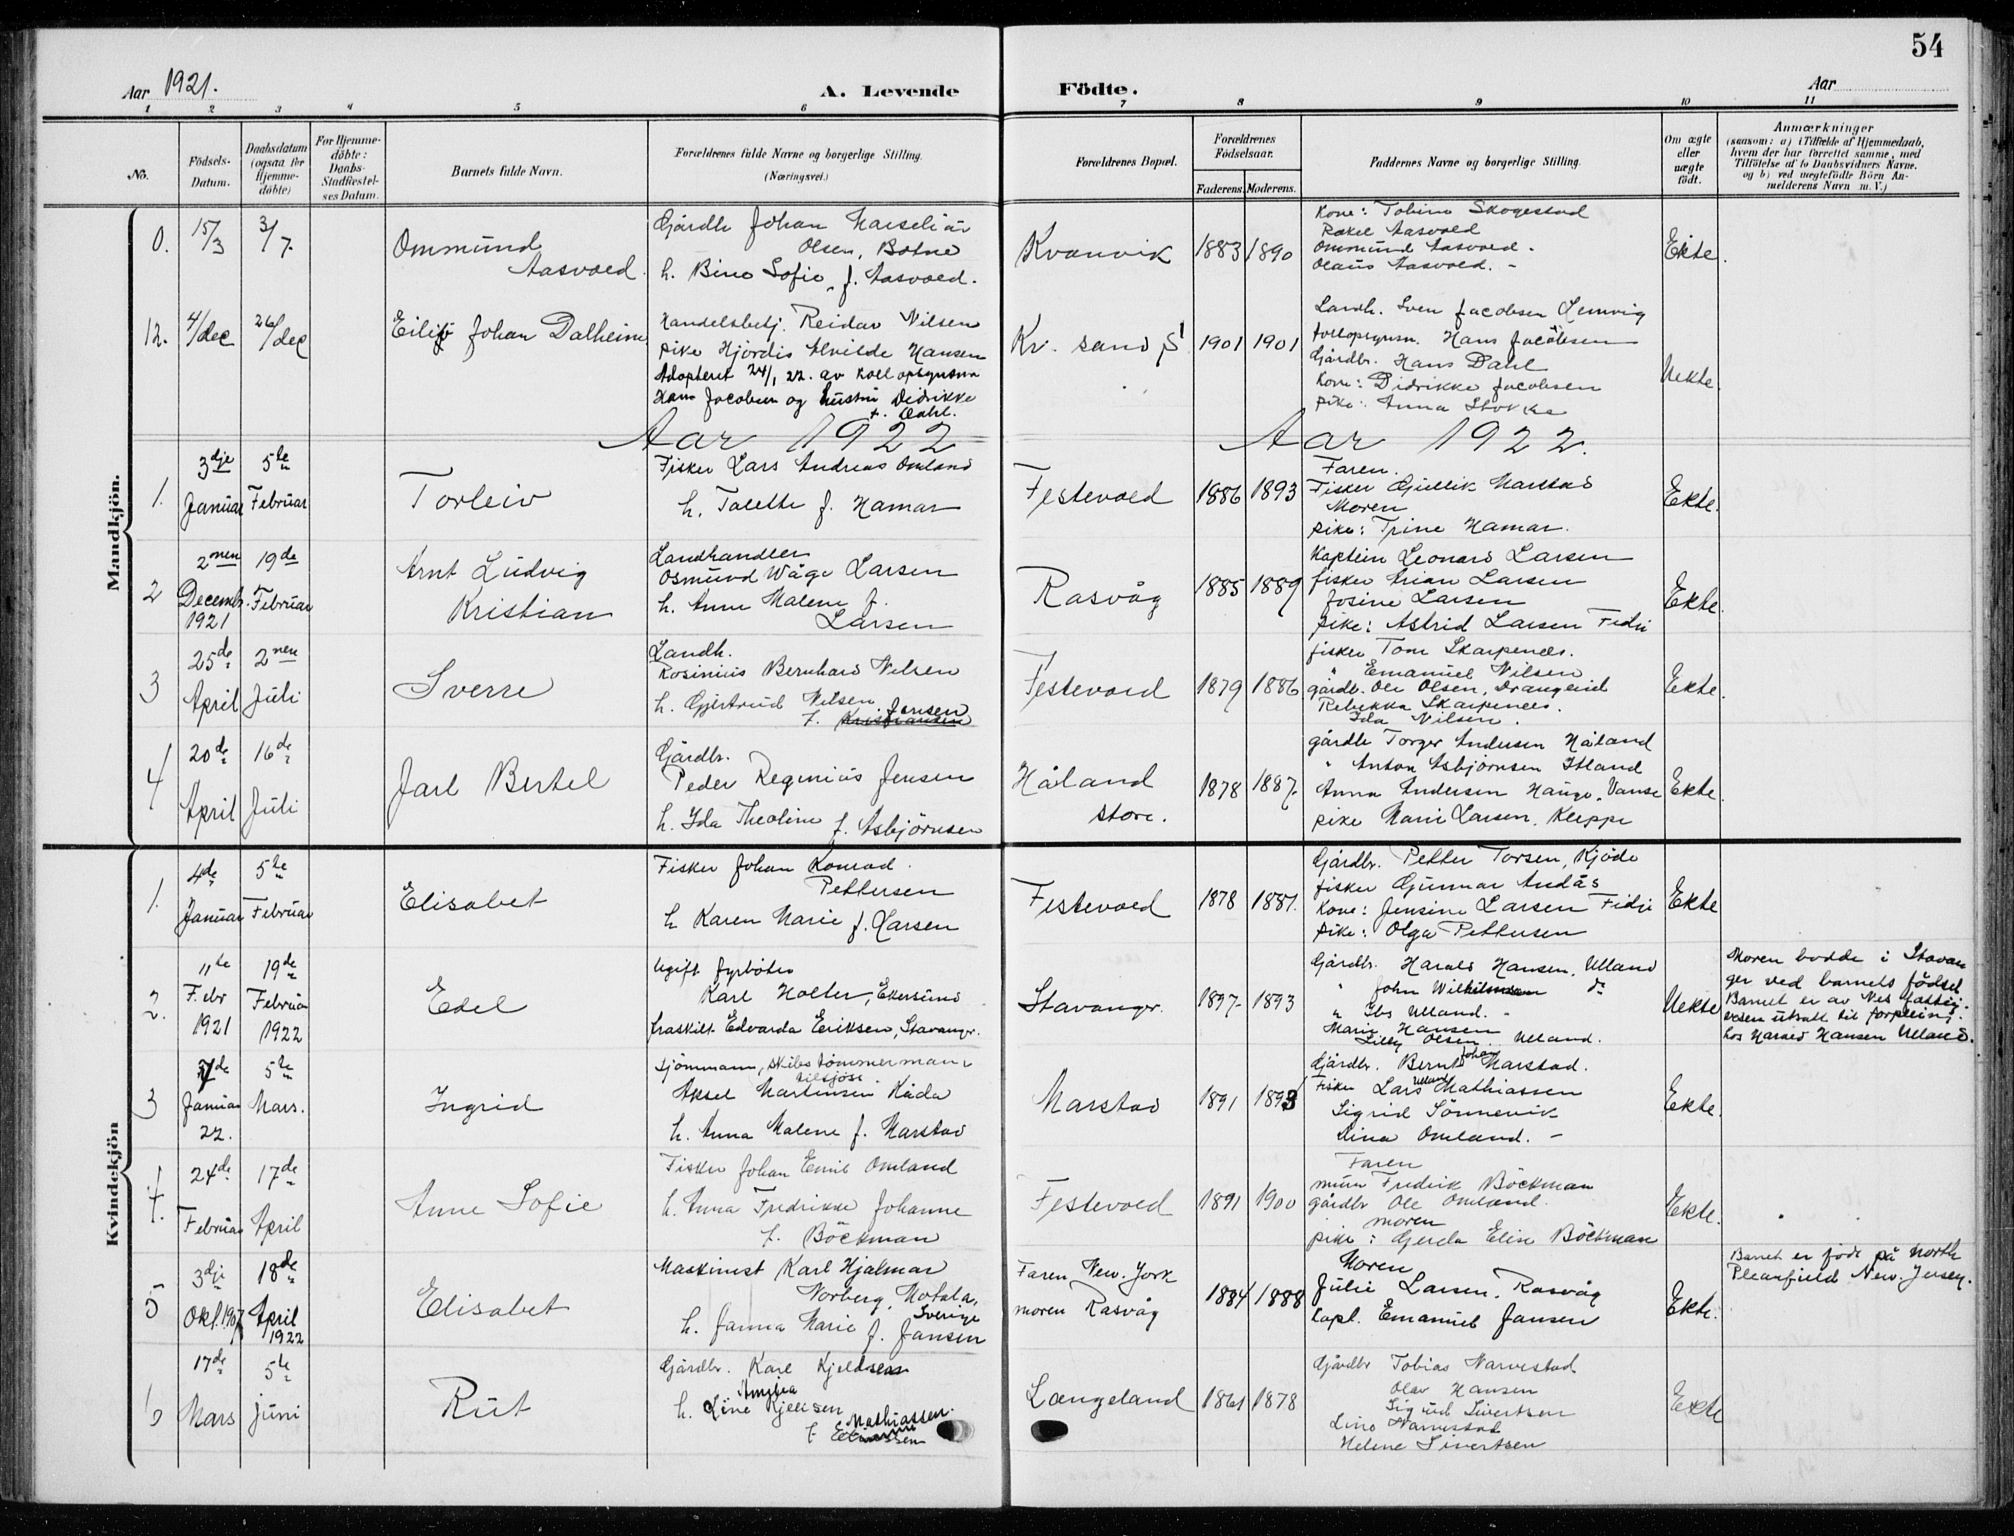 54
Aar 1921.
A. Levende
Födte.
Aar
1 2 3 4 5 6 7 8 9 10 11
No.
Födsels-
Datum.
Daabsdatum
(ogsaa for
Hjemme-
döbte)
For Hjemme-
döbte:
Daabs-
Stadfæstel-
ses Datum.
Barnets fulde Navn.
Forældrenes fulde Navne og borgerlige Stilling.
(Næringsvei.)
Forældrenes Bopæl.
Forældrenes
Födselsaar.
Faderens. Moderens.
Faddernes Navne og borgerlige Stilling.
Om ægte
eller
uægte
födt.
Anmærkninger
(saasom: a) i Tilfælde af Hjemmedaab,
hvem der har forrettet samme, med
Tilföielse af to Daabsvidners Navne.
og b) ved uægtefödte Börn An-
melderens Navn m. V.)
Mandkjön.
0.
15/3
3/7.
Ommund
Aasvoed.
Gårdbr Johan Marselius
Olsen, Botne
h. Sofie, f. Aasvoed.
Kvanvik
1883
1890
Kone: Skogestad
Rakel Aasvoed
Ommund Aasvoed.
Olaus Aasvoed. -
Ekte.
12.
4/dec
26/dec
Eilif Johan Dalheim
Handelsbetj. Reidar Nilsen
pike Hjördis Alvilde Hansen
Adopteret 24/1 22. av
Hans Jacobsen og hustru Didrikke
f. Dahl.
Kr. sand S
1901
1901
Landh. Sven Jacobsen
Hans Jacobsen
Gårdbr. Hans Dahl
Kone: Didrikke Jacobsen
pike: Anna Stokke
Uekte.
Aar 1922
Aar 1922.
1.
3dje
Januar
5te
Februar
Torleiv
Fisker Lars Andreas Omland
h. Talette f. Hamar
Festevoed
1886
1893
Faren.
Fisker Gjullik Marstad
Moren
pike: Trine Hamar.
Ekte.
2
2nen
Decemb.
1921
19de
Februar
Arnt Ludvig
Kristian
Landhandler
Osmund Wåge Larsen
h. Anne Malene f.
Larsen
Rasvåg
1885
1889
Kaptein Leonard Larsen
fisker Larsen
Josine Larsen
pike: Astrid Larsen Fedri
Ekte.
3
25de
April
2nen
Juli
Sverre
Landh.
Rosinius Bernhard Nilsen
h. Gjertrud Nilsen
f. Kristiansen Jensen
Festevoed
1879
1886
fisker Tom Skarpenes.
" Emanuel Nilsen
gårdb. Ole Olsen, Drangeid
Rebekka Skarpenes.
Ida Nilsen.
Ekte.
4
20de
April
16de
Juli
Jarl Bertel
Gårdbr.
Peder Reginius Jensen
h. Ida Theoline f. Asbjörnsen
Håland
store.
1878
1887.
gårdbr Torger Andersen Håland
" Anton Asbjörnsen
Anna Andersen Hauge, Vanse
pike Marie Larsen. Kleppe
Ekte.
Kvindekjön
1.
4de
Januar
5te
Februar
Elisabet
Fisker Johan Konrad
Pettersen
h Karen Marie f. Larsen
Festevoed
1878
1881.
Gårdbr. Petter Torsen, Kjöde
fisker Gunnar Andås
Kone: Jensine Larsen Fidje
pike: Olga Pettersen
Ekte
2.
11te
Febr
1921
19de
Februar
1922
Edel
Ugift fyrböter
Karl Holter, Ekersund
fraskilt Edvarda Eriksen, Stavanger.
Stavanger.
1897.
1893
Gårdbr. Harald Hansen, Ulland
" John Wilhelmsen do
" Ulland.
Marie Hansen
Lilly Olsen. Ulland.
Uekte
Moren bodde i Stavan
ger ved barnets födsel
Barnet er av Nes fattig-
vesen utsatt til forpleining
hos Harald Hansen Ulland.
3
7de
Januar
22.
5te
Mars.
Ingrid
Sjömmann, skibstömmermann
tilsjös.
Aksel Martinsen Kåda
h. Anna Malene f. Marstad
Marstad
1891
1893
Gårdbr. Bernt Johan Marstad.
Fisker Lars Ulland Mathiassen
Sigrid Sönnevik
Lina Omland. -
Ekte.
4.
24de
Februar
17de
April
Anne Sofie
Fisker Johan Emil Omland
h. Anna Fredrikke Johanne
f. Böckman
Festevoed
1891
1900
Faren
Fredrik Böckman
gårdbr Ole Omland.
moren
pike: Gerda Elise Böckman
Ekte.
5
3dje
Okt. 1907
18de
April
1922
Elisabet
Maskinist Karl Hjalmar
Norberg, Motala,
Sverige
h. Janna Marie f. Jansen
Faren New. York
moren Rasvåg
1884
1888
Moren
Julie Larsen. Rasvåg
Capt. Emanuel Jansen
Ekte.
Barnet er född på North
Pleanfield New. Jersey.
6
17de
Mars
5te
juni
Rut
Gårdbr. Karl Kjeldsen
h. Line Kjellsen
f. Mathiassen.
Længeland
1861
1878
Gårdbr Tobias Narvestad
Olav Hansen
Sigurd Sivertsen
Lina Narvestad
Helene Sivertsen
Ekte